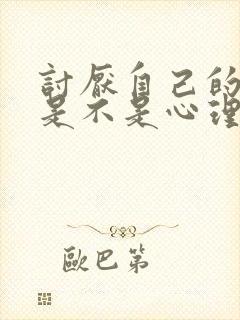 討厭自己的
是不是心理
歐巴第